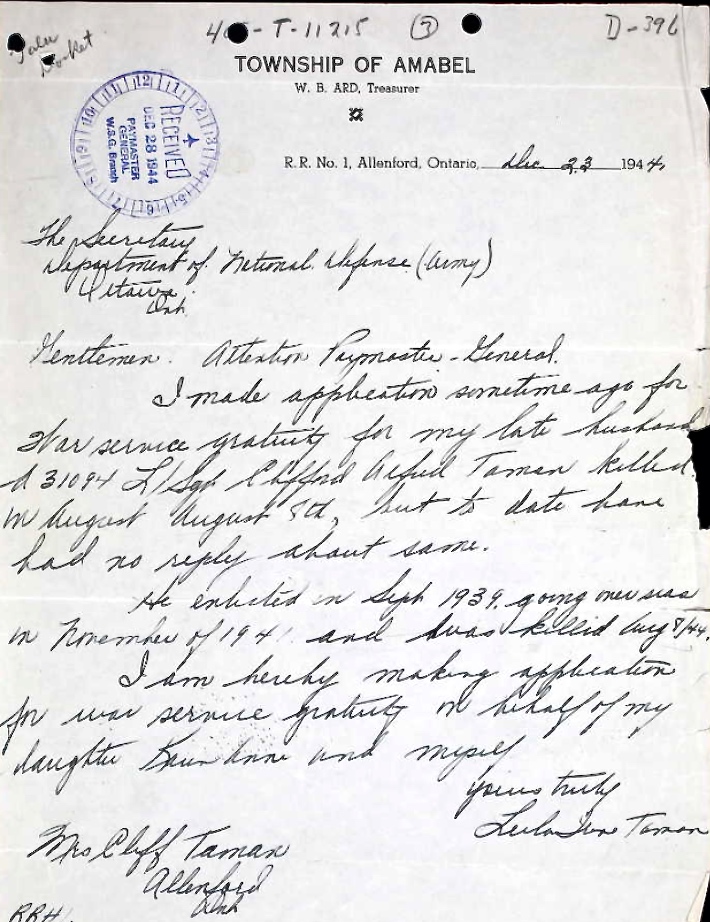 405-T-11215 (3) D-396
Docket
TOWNSHIP OF AMABEL
W. B. ARD, Treasurer
RECEIVED
DEC 28 1944
PAYMASTER
GENERAL
W.S.G. Branch
R.R. No. 1, Allenford, Ontario, Dec. 23 1944
The Secretary
Department of National Defense (Army)
Ottawa
Ont.
Gentlemen. Attention Paymaster-General.
I made application sometime ago for
War service gratuity for my late husband
A 31094 L/Sgt Clifford Alfred Taman killed
in August August 8th, but to date have
had no reply about same.
He enlisted in Sept 1939. going overseas
in November of 194 and was killed Aug 8/44.
I am hereby making application
for war service gratuity on behalf of my
daughter Anne and myself
yours truly
Taman
Mrs Cliff Taman
Allenford
Ont
RR#1.